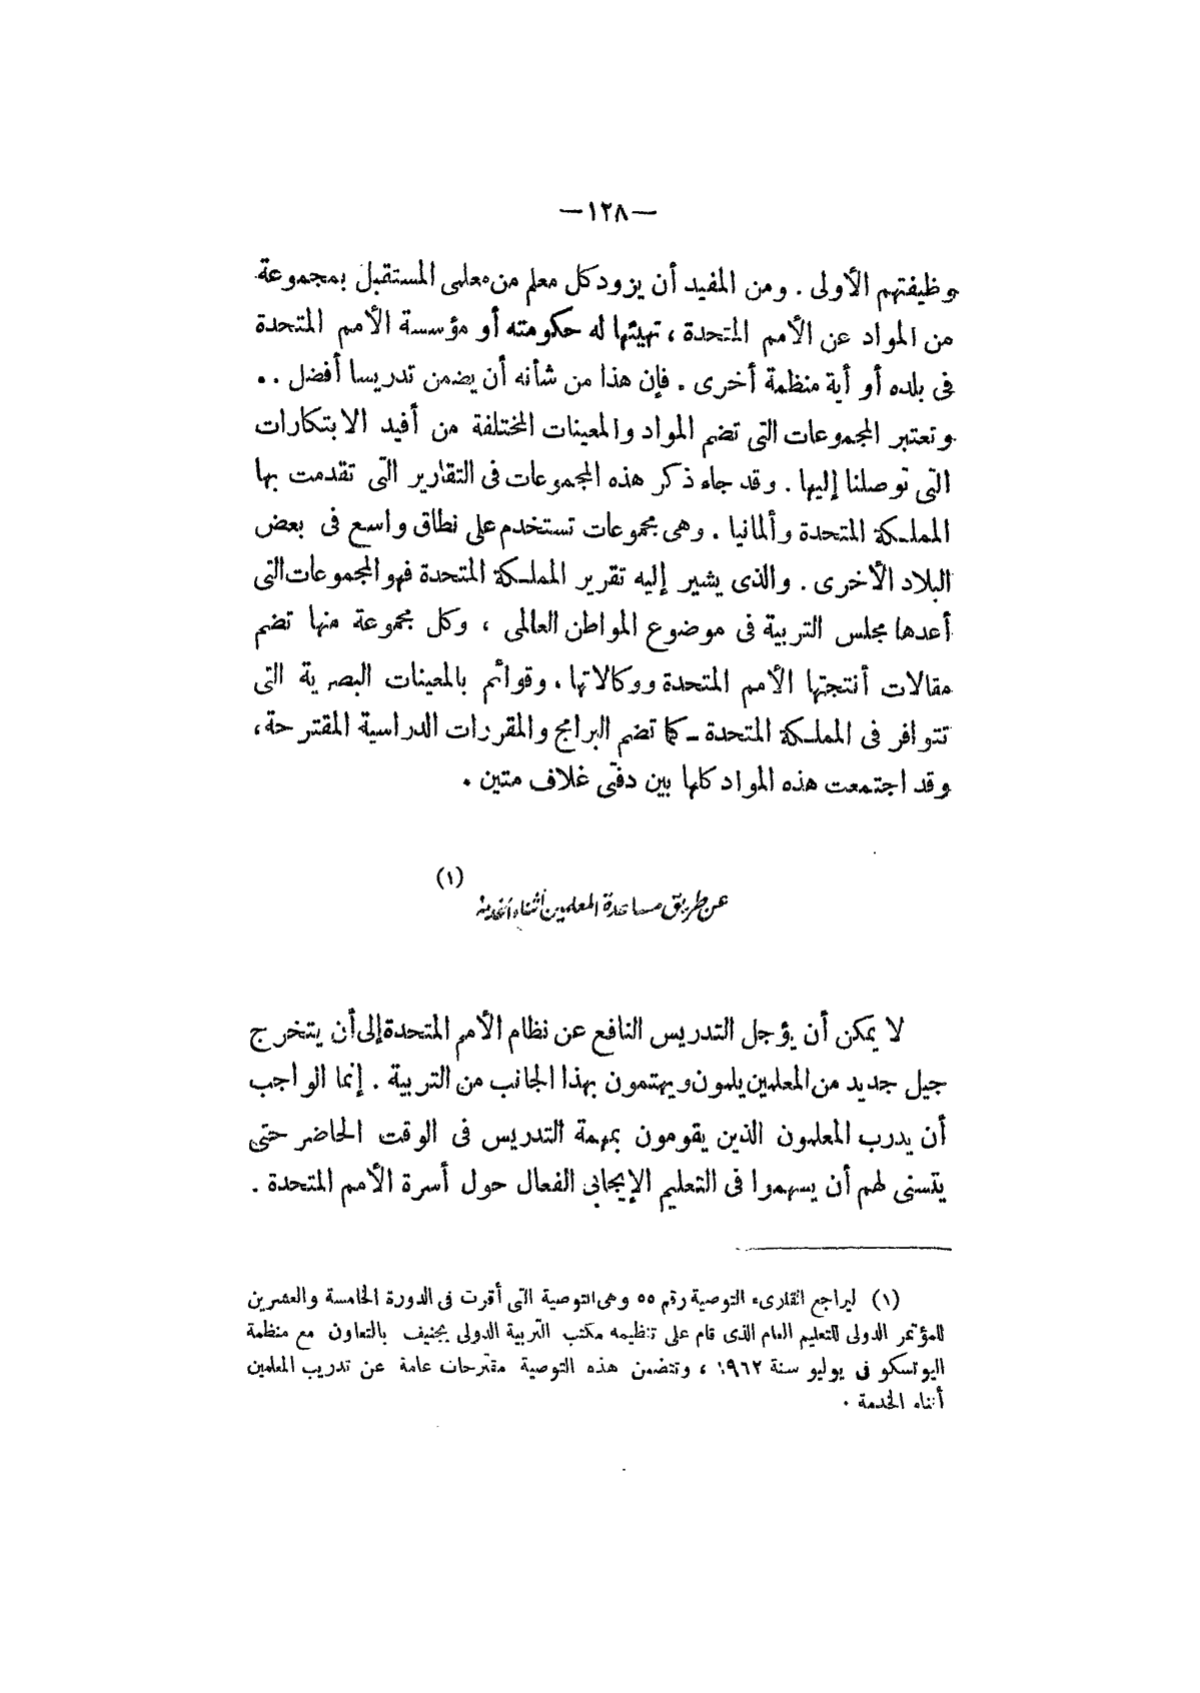 —١٢٨—
وظيفتهم الأولى . ومن المفيد أن يزود كل معلم من معلمى المستقبل بمجموعة
من المواد عن الأمم المتحدة ، تهيئها له حكومته أو مؤسسة الأمم المتحدة
فى بلده أو أية منظمة أخرى . فإن هذا من شأنه أن يضمن تدريسا أفضل . .
وتعتبر المجموعات التى تضم المواد والمعينات المختلفة من أفيد الابتكارات
التى توصلنا إليها . وقد جاء ذكر هذه المجموعات فى التقارير التى تقدمت بها
المملكة المتحدة وألمانيا . وهى مجموعات تستخدم على نطاق واسع فى بعض
البلاد الأخرى . والذى يشير إليه تقرير المملكة المتحدة فهو المجموعات التى
أعدها مجلس التربية فى موضوع المواطن العالمى ، وكل مجموعة منها تضم
مقالات أنتجتها الأمم المتحدة ووكالاتها . وقوائم بالمعينات البصرية التى
تتوافر فى المملكة المتحدة ــ كما تضم البرامج والمقررات الدراسية المقترحة ،
وقد اجتمعت هذه المواد كلها بين دفتى غلاف متين .
عن طريق مساعدة المعلمين أثناء الخدمة (١)
لا يمكن أن يؤجل التدريس النافع عن نظام الأمم المتحدة إلى أن يتخرج
جيل جديد من المعلمين يلمون ويهتمون بهذا الجانب من التربية . إنما الواجب
أن يدرب المعلمون الذين يقومون بمهمة التدريس فى الوقت الحاضر حتى
يتسنى لهم أن يسهموا فى التعليم الإيجابى الفعال حول أسرة الأمم المتحدة .
(١) ليراجع القارىء التوصية رقم ٥٥ وهى التوصية التى أقرت فى الدورة الخامسة والعشرين
للمؤتمر الدولى للتعليم العام الذى قام على تنظيمه مكتب التربية الدولى بجنيف بالتعاون مع منظمة
اليونسكو فى يوليو سنة ١٩٦٢ ، وتتضمن هذه التوصية مقترحات عامة عن تدريب المعلمين
أثناء الخدمة .